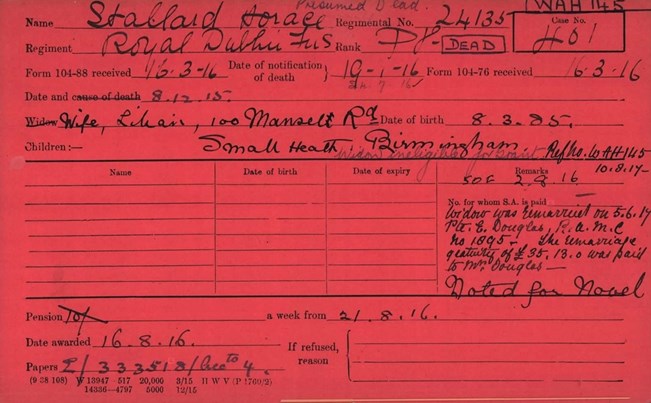 Presumed Dead.
WAH 145
Name Stallard Horace Regimental No. 24135 Case No.
Regiment Royal Dublin Fus Rank Pte DEAD 401
Form 104-88 received 16-3-16 Date of notification of death 19-1-16 Form 104-76 received 16.3.16
Date and cause of death 8.12.15.
Widow Wife, Lilian, 100 Mansell Rd Date of birth 8.3.85.
Children:— Small Heath Birmingham
Widow ineligible for Grant. Ref No. WAH 145
10.8.17-
Name Date of birth Date of expiry Remarks
2.8.16
No. for whom S.A. is paid
Widow was remarried on 5.6.17
Pte. E. Douglas, R.A.M.C
No 1895- The remarriage
gratuity of £35.13.0 was paid
to Mrs Douglas—
Noted for Novel
Pension 10/- a week from 21.8.16.
Date awarded 16.8.16.
If refused, reason
Papers 2/333518/ 4.
(9 38 108) W 13947—517 20,000 3/15 H W V (P 1760/2)
14336—4797 5000 12/15